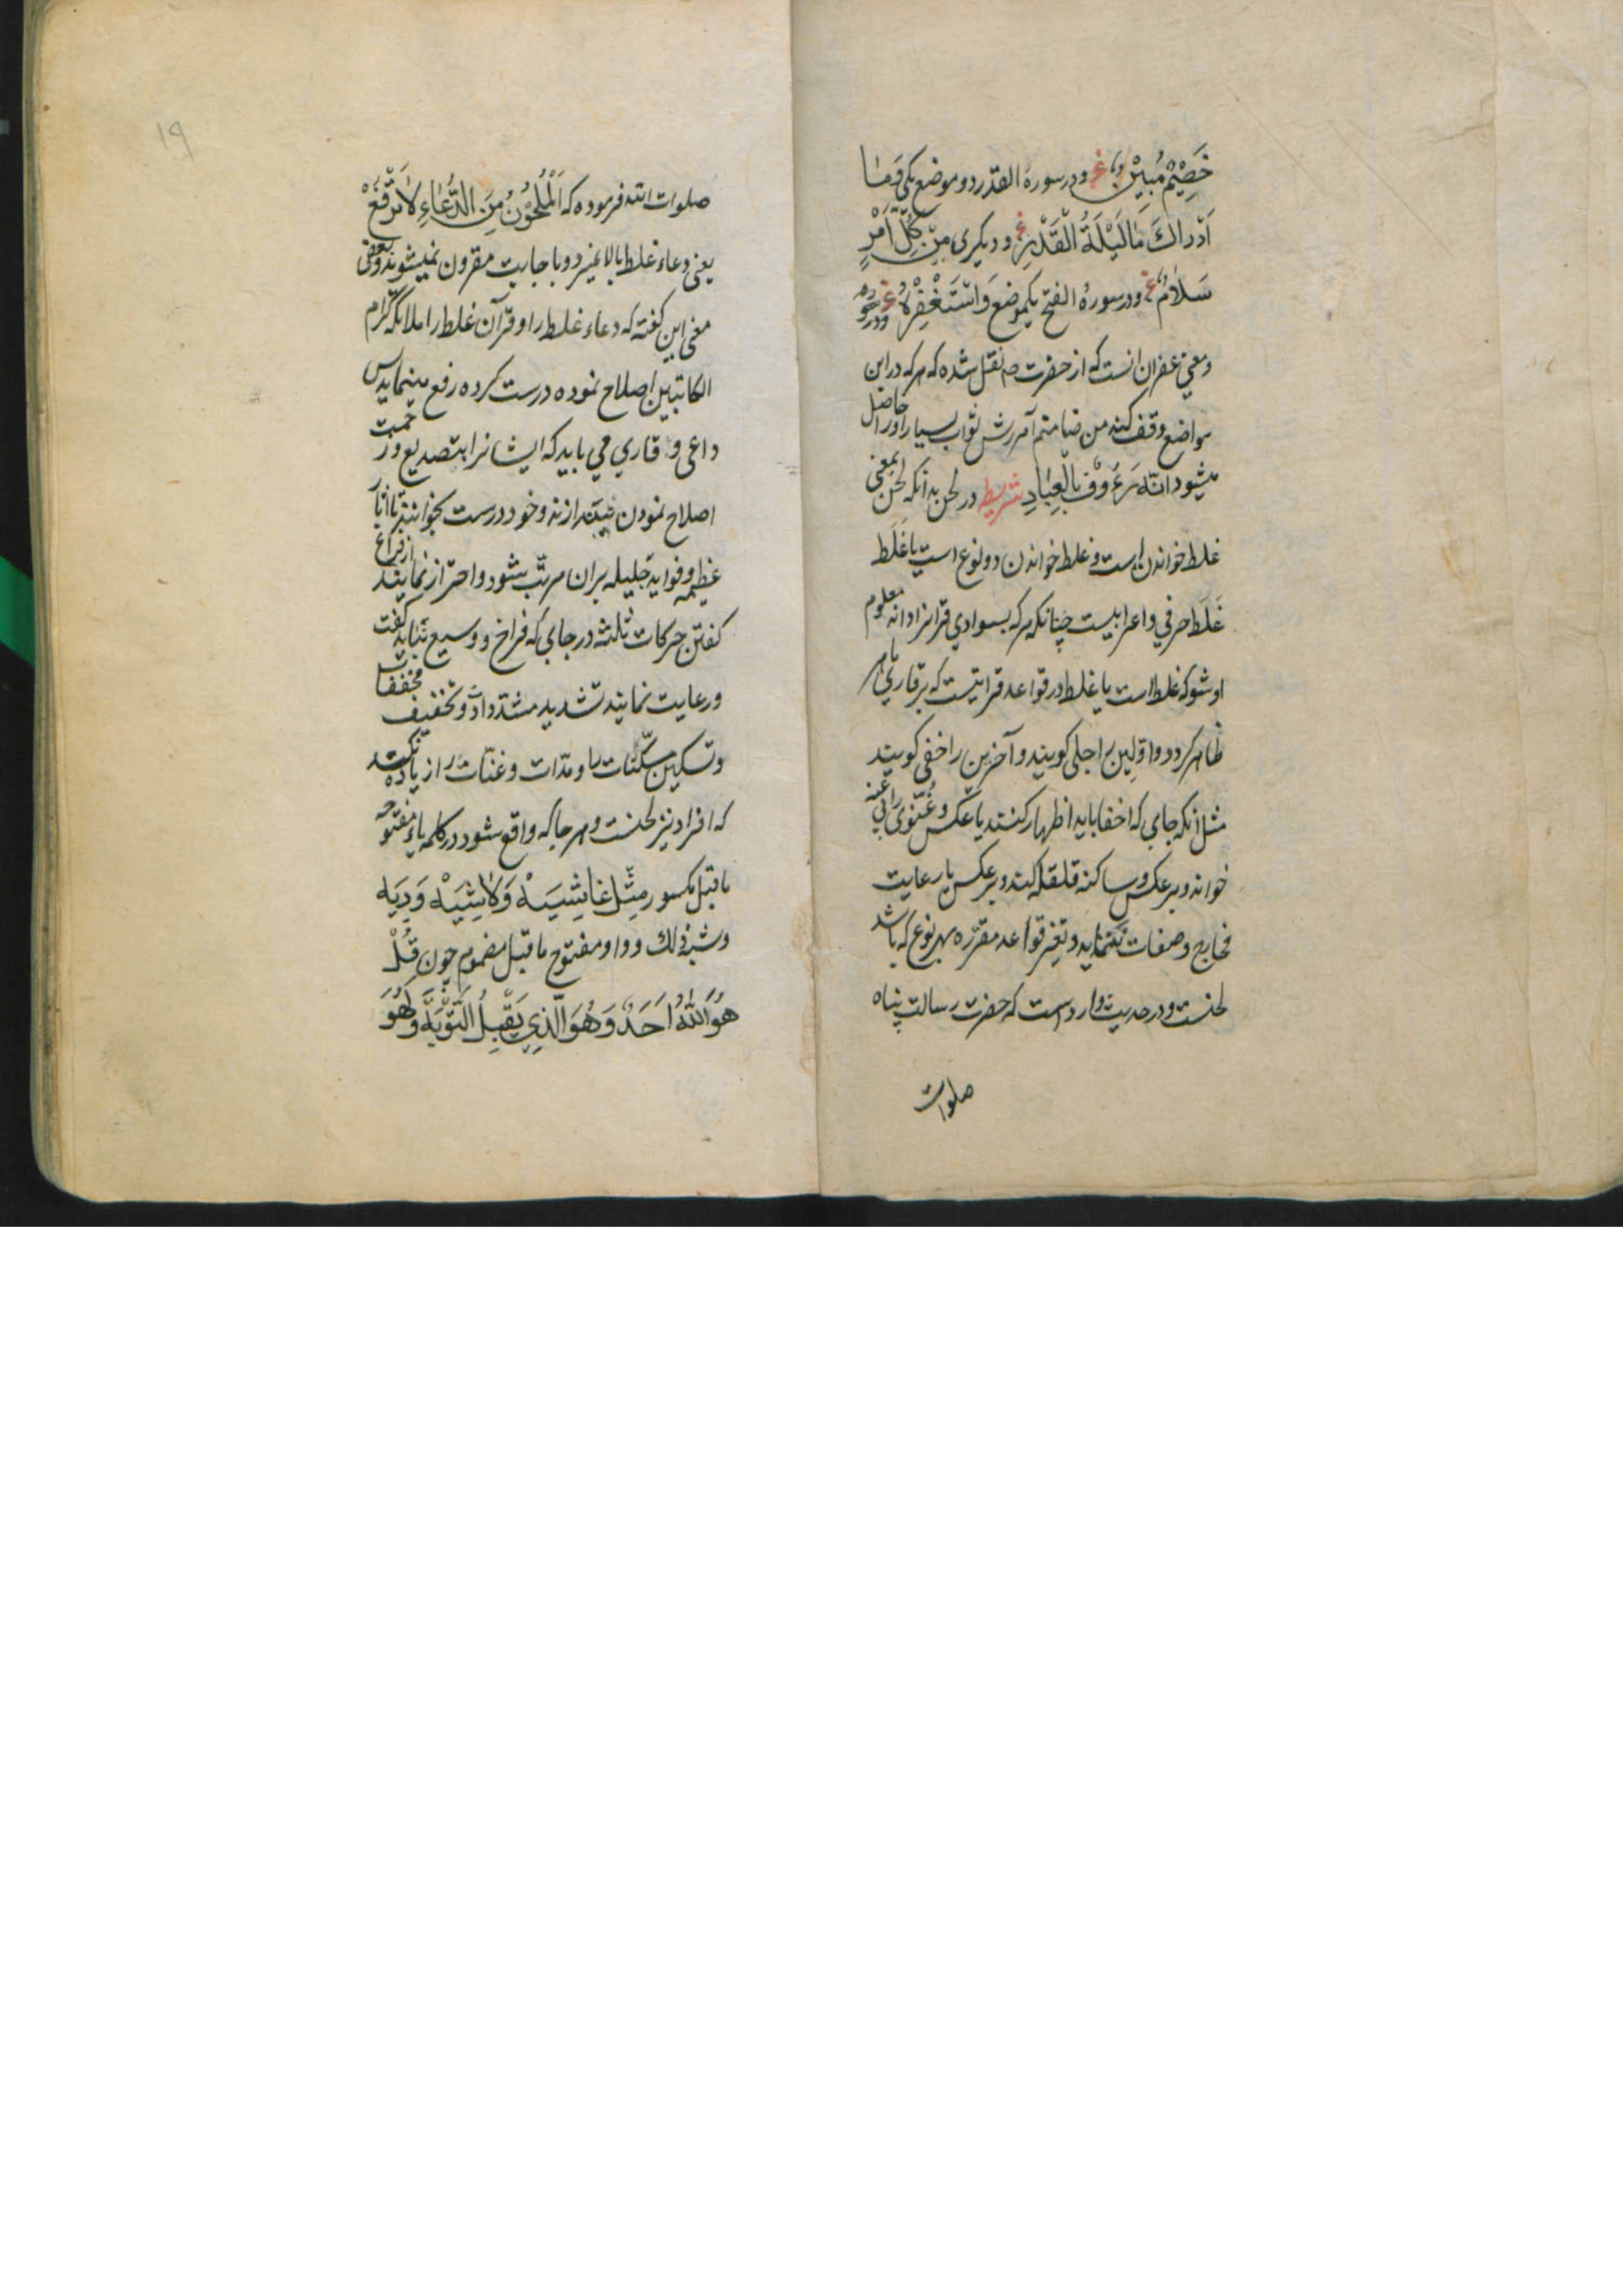 خَصِيْمٌ مُبِيْنٌ غ ودر سورهٔ القدر دو موضع یکی وَمَا
اَدْرَاكَ مَا لَيْلَةُ الْقَدْرِ غ ودیکری مِنْ كُلِّ اَمْرٍ
سَلَامٌ غ ودر سورهٔ الفتح یکموضع وَاسْتَغْفِرْهُ غ
ومعنی غفران انست که از حضرت ص نقل شده که هرکه در این
مواضع وقف کند من ضامنم آمرزش ثواب بسیار اورا حاصل
میشود اللّه رَءُوْفٌ بِالْعِبَادِ شریطه در لحن بدانکه لحن بمعنی
غلط خواندن است وغلط خواندن دو نوع است یا غَلَط
غَلَط حرفی واعرابیست چنانکه هرکه بسوادی قرانرا داند معلوم
او شود که غلط است یا غلط در قواعد قرائتیست که بر قاری ماهر
ظاهر کردد واوّلین را جلی کویند وآخرین را خفی کویند
مثل آنکه جای که اخفا باید اظهار کنند یا عکس وغُنّوی را بی غنه
خواند وبرعکس وساکنه قلقله کند وبرعکس یا رعایت
مخارج وصفات نکنماید وتغیر قواعد مقرّره بهر نوع که باشد
لحنست ودر حدیث وارد است که حضرت رسالت پناه
صلوات
۱۹
صلوات اللّه فرموده که اَلْمَلْحُوْنُ مِنَ الدُّعَاءِ لَا تَرْفَعْ
یعنی دعاء غلط بالا نمیرد وبا جابت مقرون نمیشوند وبعضی
معنی این کفته که دعاء غلط را وقرآن غلط را ملائکه کرام
الکاتبین اصلاح نموده درست کرده رفع مینماید پس
داعی وقاری می باید که ایشانرا بتصدیع وزحمت
اصلاح نمودن نیندازند وخود درست بخوانند تا اثار
عظیمه وفواید جلیله بران مرتّب بشود واحتراز نمایند از فراخ
کفتن حرکات ثلثه در جای که فراخ ووسیع نباید کفت
ورعایت نمایند تشدید مشدّدات وتخفیف مخففات
وتسکین مسکّنات را ومدّات وغنّات را زیاده نکنند
که افراد نیز لحنست وهر جا که واقع شود در کلمه یاء مفتوحه
ما قبل مکسور مِثْل غَاشِيَةْ وَلَاشِيَةْ وَدِيَه
وشبه ذلك وواو مفتوح ما قبل مضموم چون قُلْ
هُوَ اللّٰهُ اَحَدٌ وَهُوَ الَّذِي يَقْبَلُ التَّوْبَةَ وَهُوَ